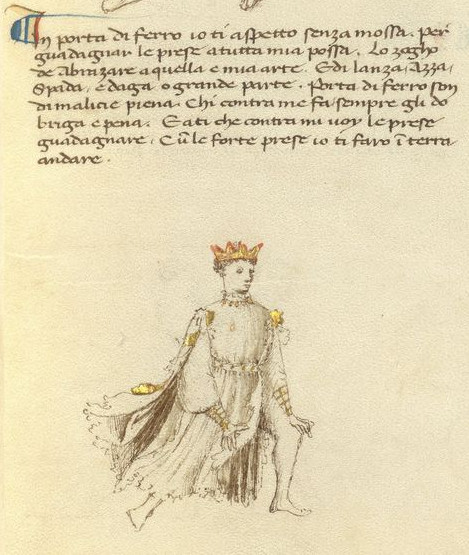 In porta di ferro io ti aspetto senza mossa. per
guadagnar le prese a tutta mia possa. Lo zogho
de Abrazare a quella e mia arte. E di lanza, Azza,
Spada, e daga o grande parte. Porta di ferro son
di malicie piena. Chi contra me fa sempre gli do
briga e pena. E a ti che contra mi voy le prese
guadagnare. Cū le forte prese io ti faro ī terra
andare.